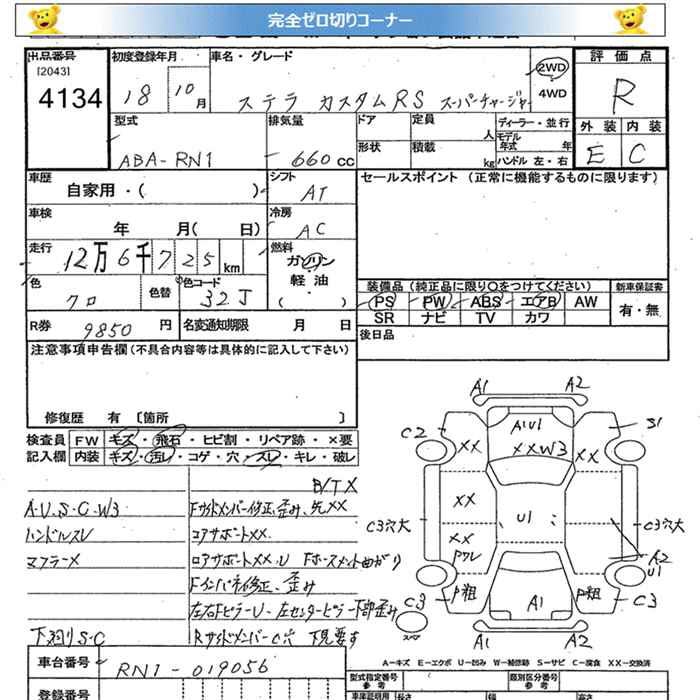 完全ゼロ切りコーナー
出品番号 初度登録年月 車名・グレード 評価点
[2043]
4134 18 10月 ステラ カスタムRS スーパーチャージャー 2WD 4WD R
型式 排気量 ドア 定員 人 ディーラー・並行 外装 内装
ABA-RN1 660cc 形状 積載 kg モデル年式 年 ハンドル 左・右 E C
車歴 シフト セールスポイント (正常に機能するものに限ります)
自家用・( ) AT
車検 冷房
年 月( 日) AC
走行 燃料
12万6千725km ガソリン
軽油
( )
色 色替 色コード 装備品 (純正品に限り○をつけてください) 新車保証書
クロ 32J PS PW ABS エアB AW 有・無
SR ナビ TV カワ
R券 9850円 名変通知期限 月 日 後日品
注意事項申告欄(不具合内容等は具体的に記入して下さい)
修復歴 有 [箇所 ]
検査員 FW キズ・飛石・ヒビ割・リペア跡・×要
記入欄 内装 キズ・汚レ・コゲ・穴・スレ・キレ・破レ
B/TX
A.U.S.C.W3 Fサイドメンバー修正、歪み、先XX
ハンドルスレ コアサポートXX
マフラーX ロアサポートXX.U Fホースメント曲がり
Fインパネ修正、歪み
左右FピラーU 左センターピラー下部歪み
下廻りS.C RサイドメンバーC穴 下見要す
A1 A2
C2 XX A1U1 XXW3 XX S1
XX
C3穴大 U1 C3穴大
XX PワレA2 U1
C3 P粗 A1 P粗 C3
スペア A1 A2
A-キズ E-エクボ U-凹み W-補修跡 S-サビ C-腐食 XX-交換済
車台番号 RN1-019056
型式指定番号 参考 類別区分番号 参考
登録番号 車庫証明用 長さ 幅 高さ